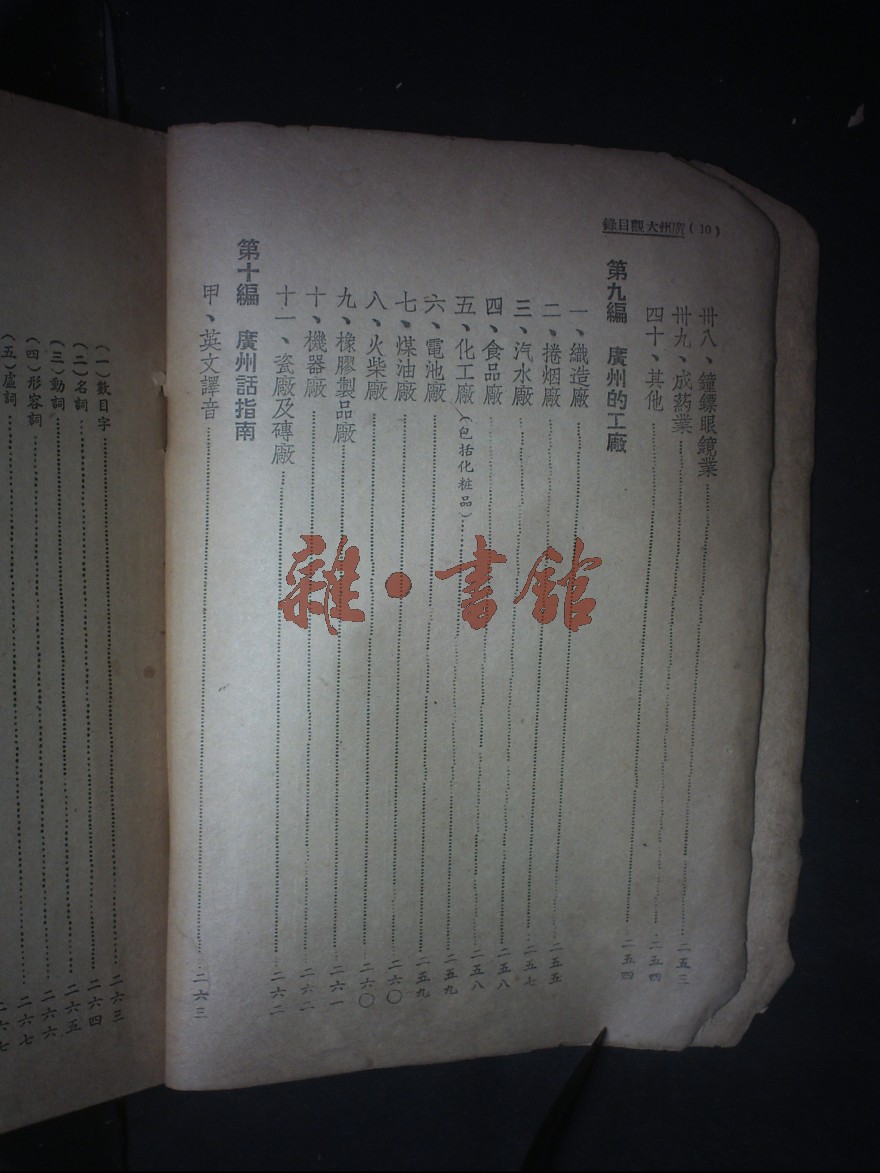 (10)廣州大觀目錄
卅八、鐘鏢眼鏡業……二五三
卅九、成葯業……二五四
四十、其他……二五四
第九編　廣州的工廠
一、織造廠……二五五
二、捲烟廠……二五七
三、汽水廠……二五八
四、食品廠……二五八
五、化工廠(包括化粧品)……二五九
六、電池廠……二五九
七、煤油廠……二六〇
八、火柴廠……二六〇
九、橡膠製品廠……二六一
十、機器廠……二六二
十一、瓷廠及磚廠……二六二
第十編　廣州話指南
甲、英文譯音……二六三
(一)數目字……二六三
(二)名詞……二六四
(三)動詞……二六五
(四)形容詞……二六六
(五)虛詞……二六七
雜·書館